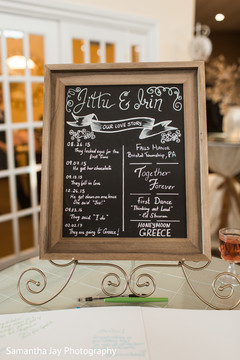 Jittu & Irin
OUR LOVE STORY
08.26.15
They locked eyes for the
first time
09.03.15
He got her chocolate
09.15.15
They fell in love
12.26.15
He got down on one knee
She said "Yes!"
They said "I do"
They are going to Greece!
Falls Manor
Bristol Township, PA
Together
Forever
First Dance
"Thinking out Loud"
- Ed Sheeran
HONEYMOON
GREECE
Samantha Jay Photography